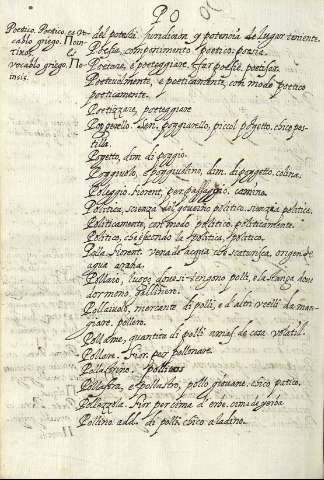 PO
Poetica, Poetico, es vo-
cablo griego. Ποιη-
τικὸς
vocablo griego. Πο
del potestà. jurdicion y potencia del lugar teniente.
Poesia, componimento poetico. poesia.
Poetare, e poeteggiare, far poesie, poetisar.
Poeticamente, con modo poetico
poeticamente.
Poetizzare, poeteggiare
Poggerello, poggiarello, picciol poggetto, chico
Poggetto, dim. di poggio.
Poggiuolo, e poggiuolino, dim. di poggetto, colina.
Poleggio, fiorent. per passaggio, camino.
Politica, scienza del governo politico. sienzia politica.
Politicamente, con modo politico. politicamente.
Politico, che secondo la politica, politico.
Polla, fiorent. vena de acqua che scaturisca, origen de
agua
Pollaio, luogo dove si tengono polli, e la stanza dove
dormono, gallinero.
Pollaiuolo, mercante di polli, e d'altri ucelli da man-
giare. pollero.
Pollame, quantità di polli. de cosa volatil.
Pollare. Fior. per
Pollastrino.
Pollastra, e pollastro, pollo giovane. chico
Pollezzola. fior. per cima d'erbe. cima de yerva
Pollino add. di polli. chico